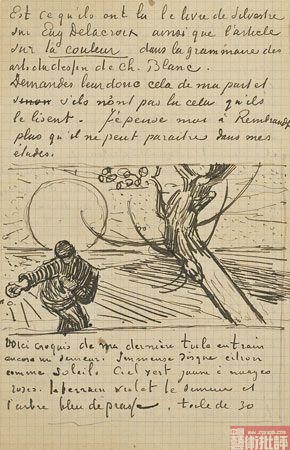 Est ce qu'ils ont lu le livre de Silvestre
sur Eug Delacroix ainsi que l'article
sur la couleur dans la grammaire des
arts du dessin de Ch. Blanc.
Demandes leur donc cela de ma part et
sinon s'ils n'ont pas lu cela qu'ils
le lisent. Je pense moi à Rembrandt
plus qu'il ne peut paraitre dans mes
études.
Voici croquis de ma dernière toile en train
encore un semeur. Immense disque citron
comme soleil. Ciel vert jaune à nuages
roses. le terrain violet le semeur et
l'arbre bleu de prusse. toile de 30
艺术批评